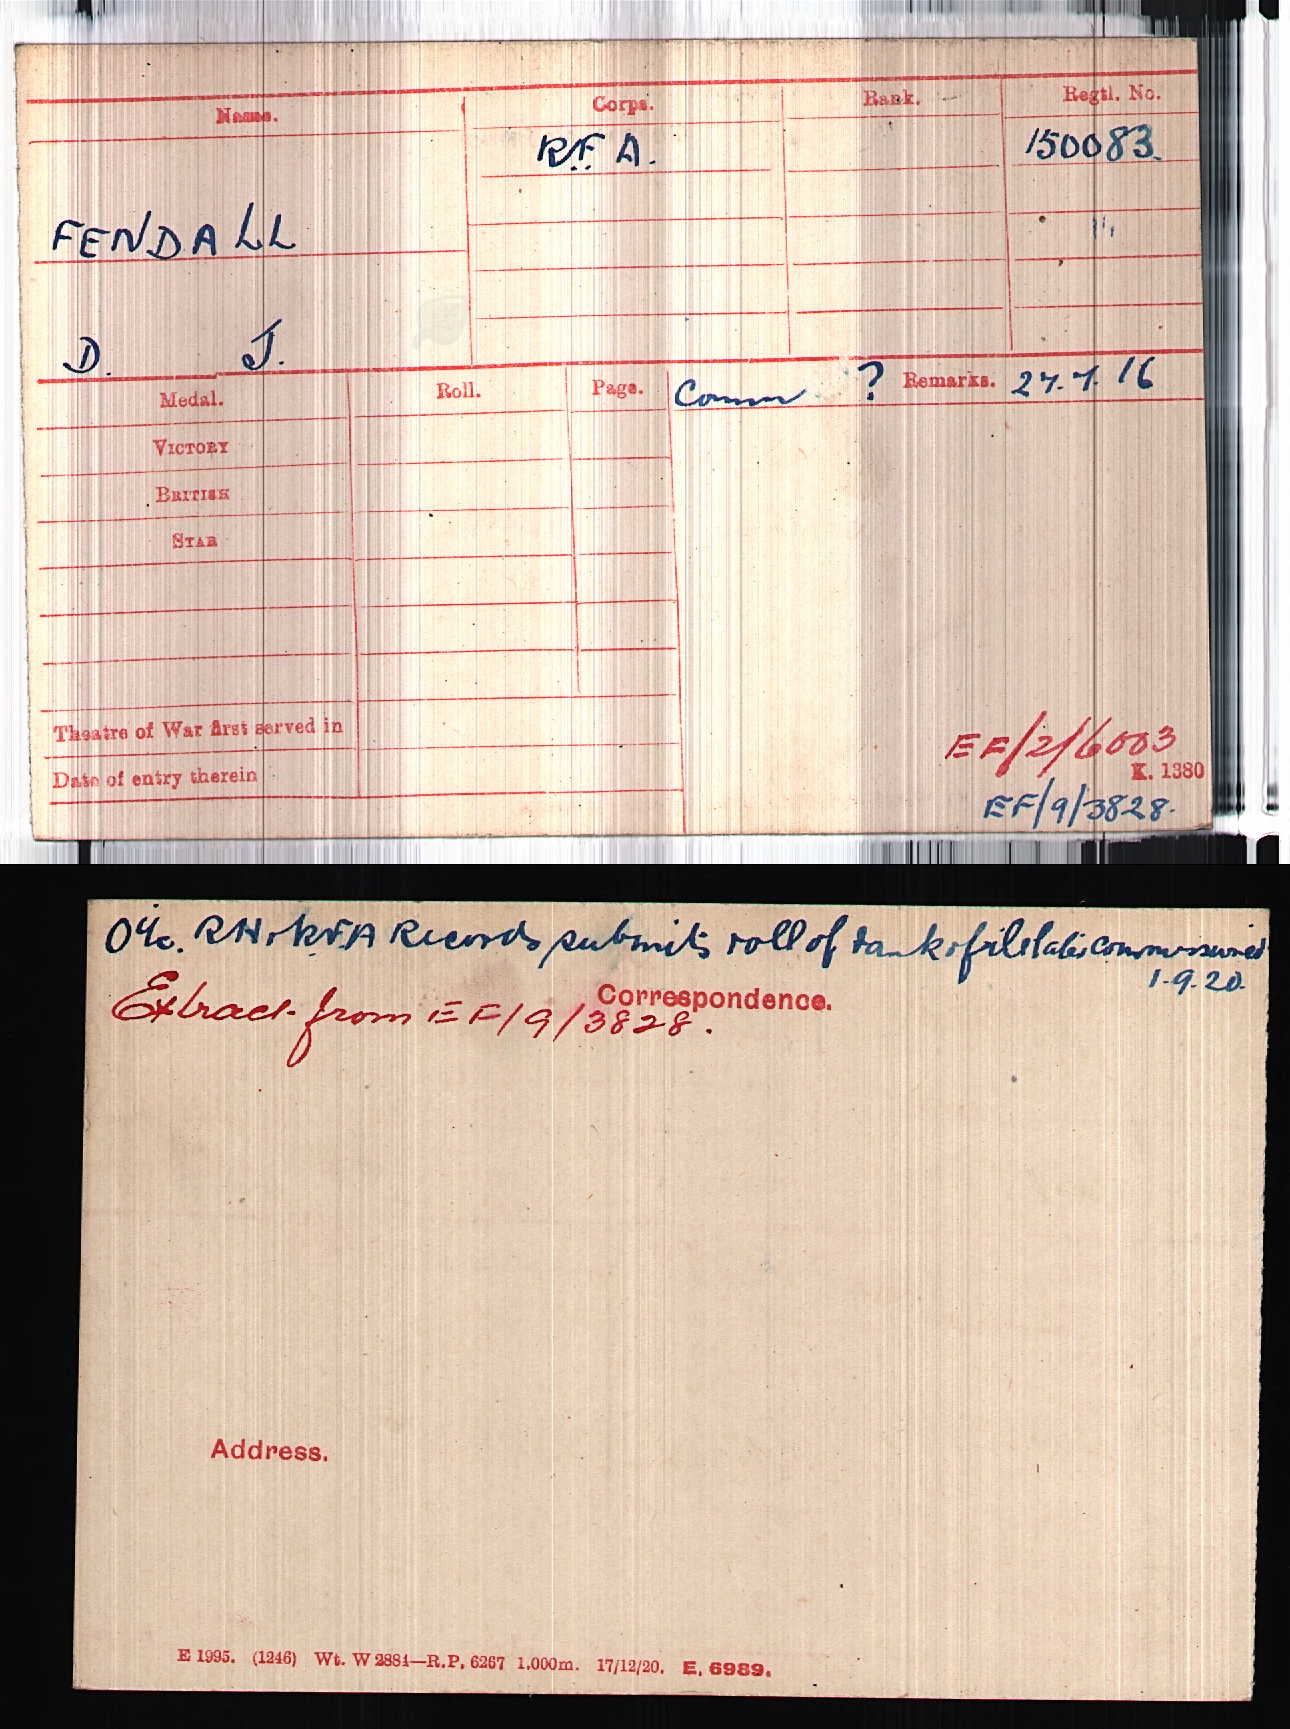 Name. Corps. Rank. Regtl. No.
R.F.A. 150083.
FENDALL
D. J.
Medal. Roll. Page. Comm ? Remarks. 27.7.16
VICTORY
BRITISH
STAR
Theatre of War first served in
Date of entry therein
EF/2/6003
K. 1380
EF/9/3828.
O i/c. RH & RFA Records submits roll of rank & file later commissioned
1.9.20.
Correspondence.
Extract from EF/9/3828.
Address.
E 1995. (1246) Wt. W 2884—R.P. 6267 1,000m. 17/12/20. E. 6989.